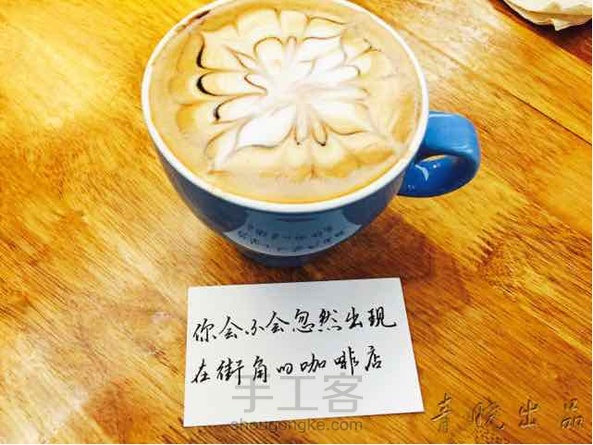 你会不会忽然出现
在街角的咖啡店
手工客
shougongke.com
出品